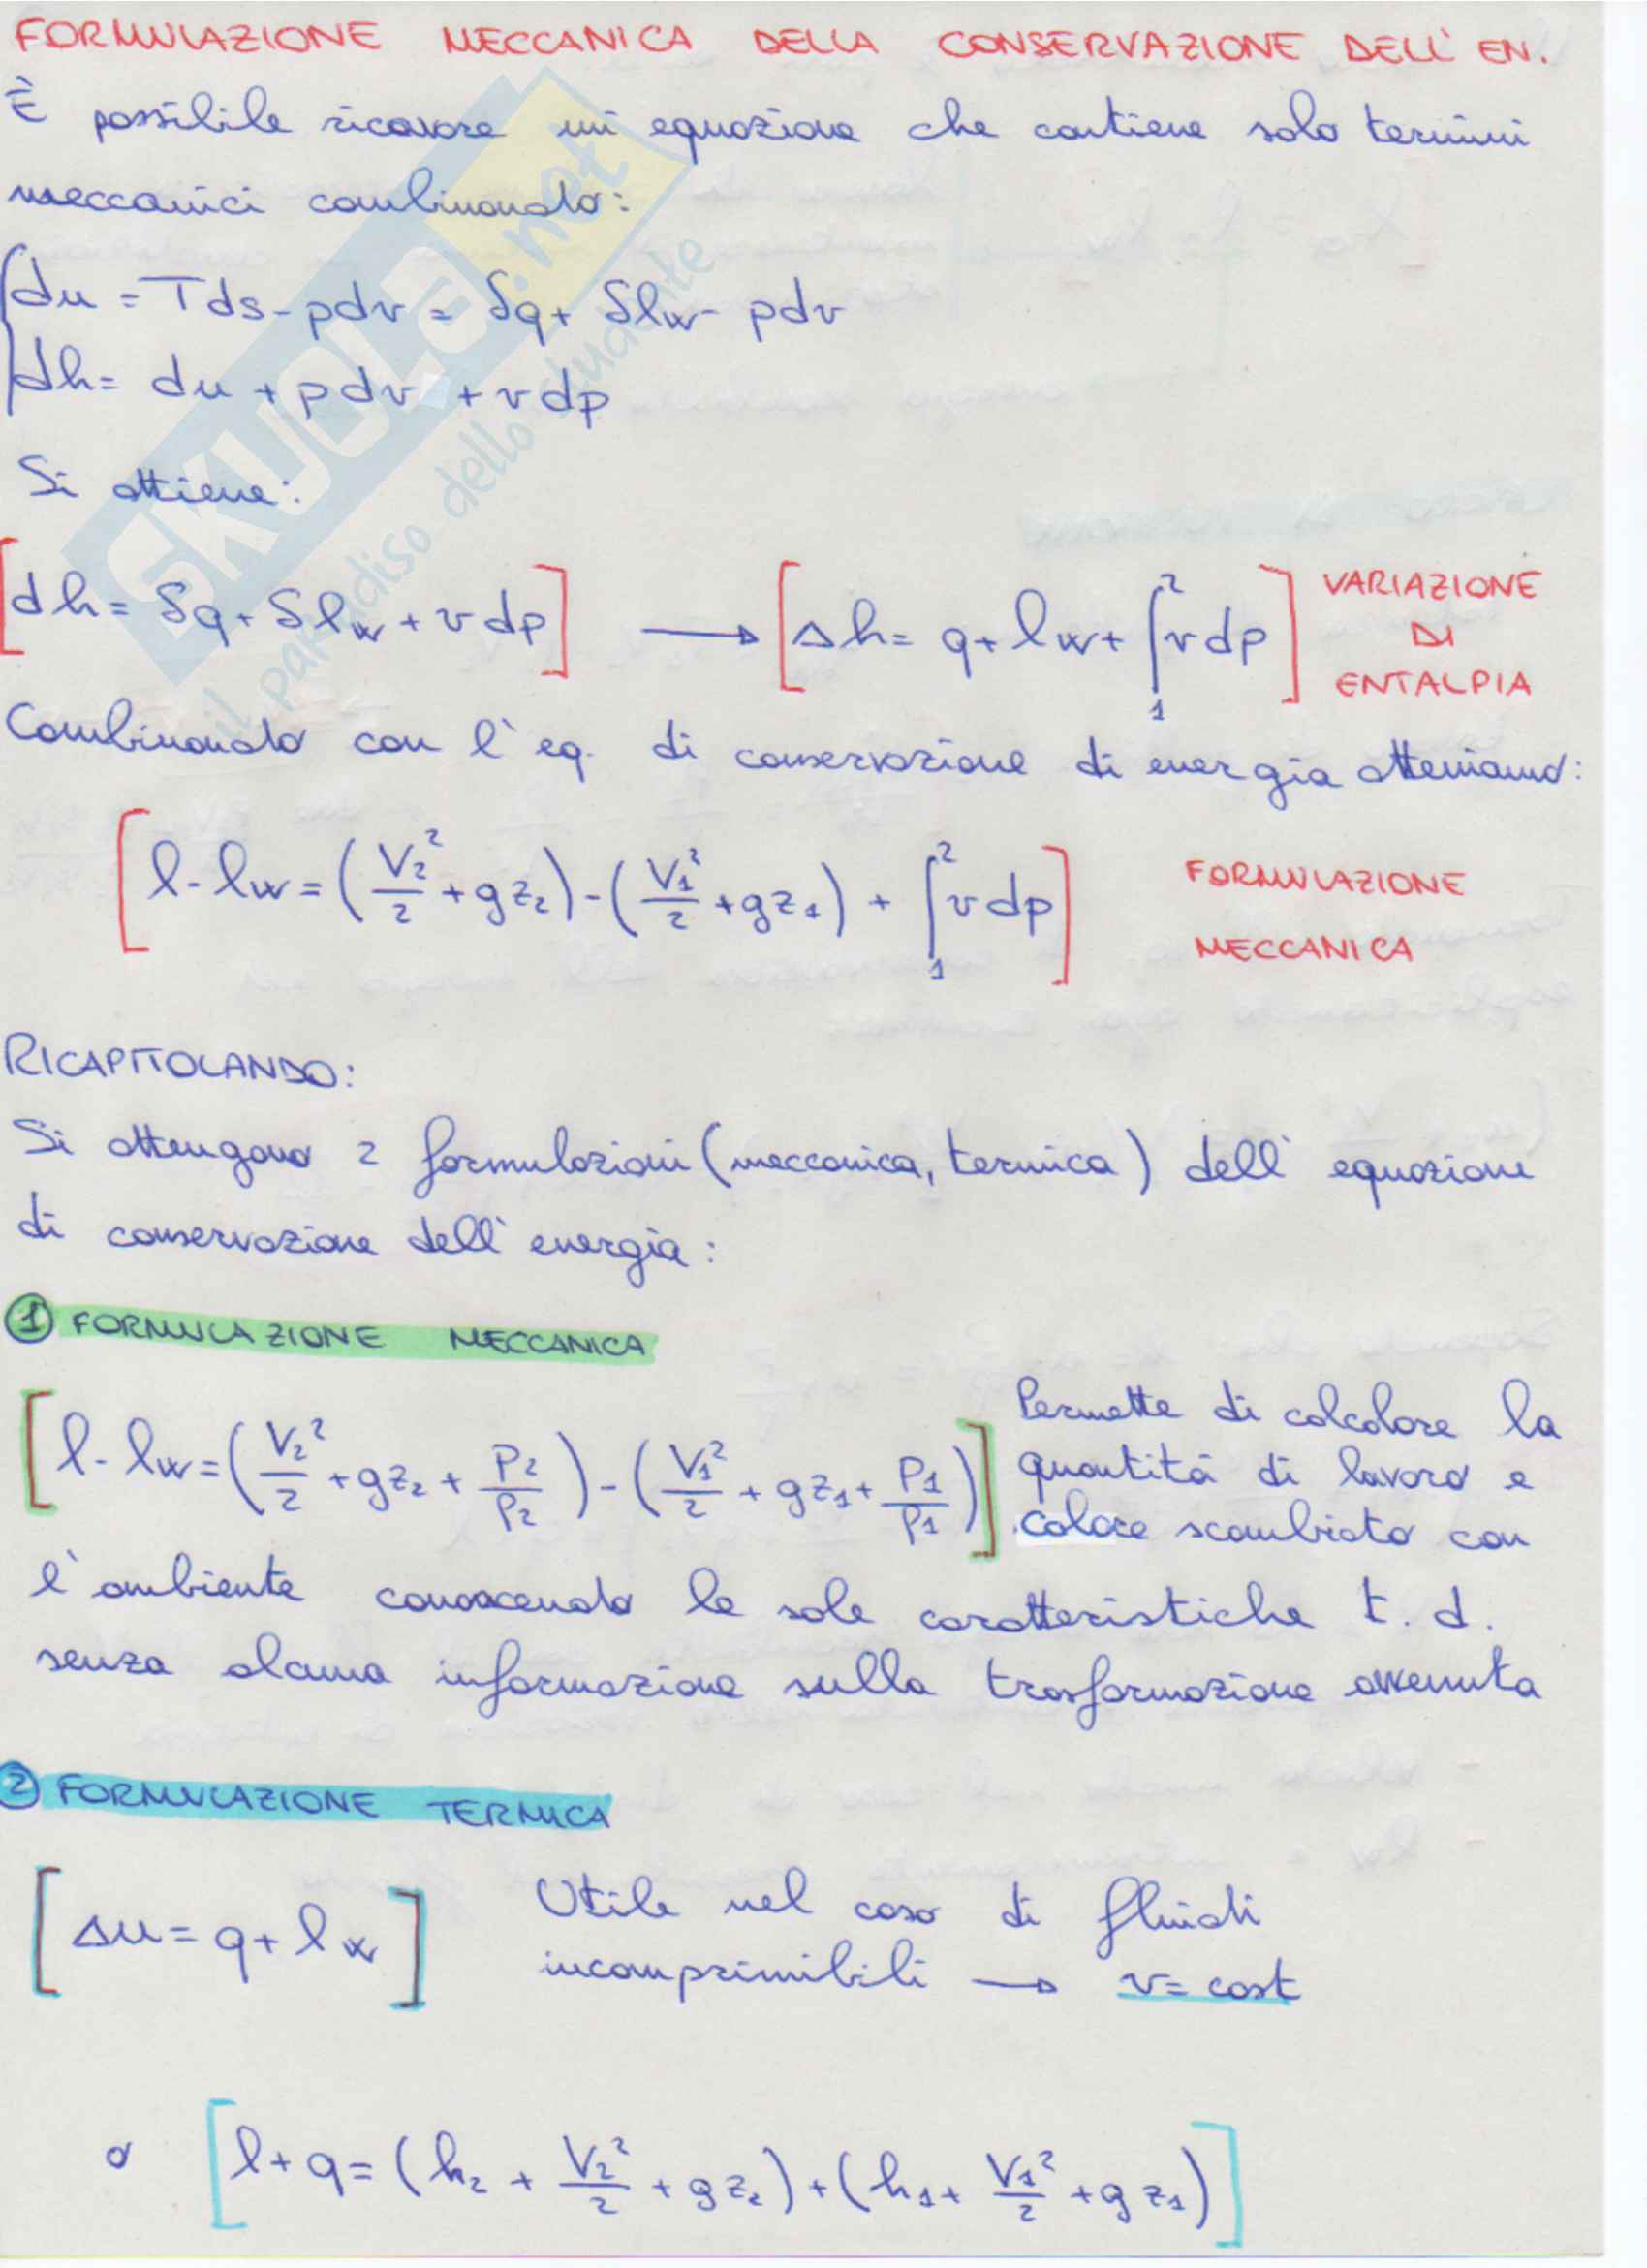 FORMULAZIONE MECCANICA DELLA CONSERVAZIONE DELL' EN.
È possibile ricavare un' equazione che contiene solo termini
meccanici combinando:
du = Tds - pdv = δq + δlw - pdv
dh = du + pdv + vdp
Si ottiene:
[dh = δq + δlw + vdp] → [Δh = q + lw + ∫₁² vdp] VARIAZIONE DI ENTALPIA
Combinando con l' eq. di conservazione di energia otteniamo:
[l - lw = (V₂²/2 + gz₂) - (V₁²/2 + gz₁) + ∫₁² vdp] FORMULAZIONE MECCANICA
RICAPITOLANDO:
Si ottengono 2 formulazioni (meccanica, termica) dell' equazione
di conservazione dell' energia:
① FORMULAZIONE MECCANICA
[l - lw = (V₂²/2 + gz₂ + P₂/ρ₂) - (V₁²/2 + gz₁ + P₁/ρ₁)] Permette di calcolare la
quantità di lavoro e
calore scambiato con
l' ambiente conoscendo le sole caratteristiche t. d.
senza alcuna informazione sulla trasformazione avvenuta
② FORMULAZIONE TERMICA
[Δu = q + lw] Utile nel caso di fluidi
incomprimibili → v = cost
o [l + q = (h₂ + V₂²/2 + gz₂) + (h₁ + V₁²/2 + gz₁)]
SKUOLA.net
il paradiso dello studente